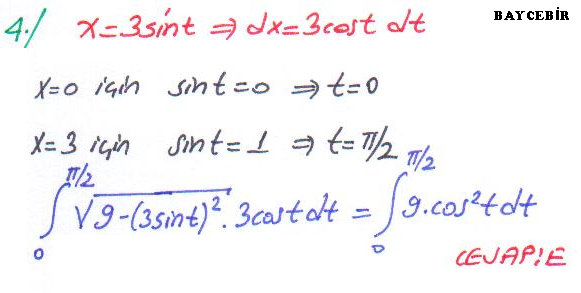 BAYCEBİR
4·/ x=3sint ⇒ dx=3cost dt
x=0 için sint=0 ⇒ t=0
x=3 için sint=1 ⇒ t=π/2
∫₀^{π/2} √(9-(3sint)²) . 3cost dt = ∫₀^{π/2} 9.cos²t dt
CEVAP:E